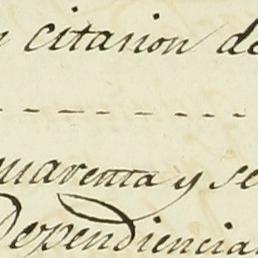 citasion de
- - - - - - - - -
quarenta y se
Dependiencia